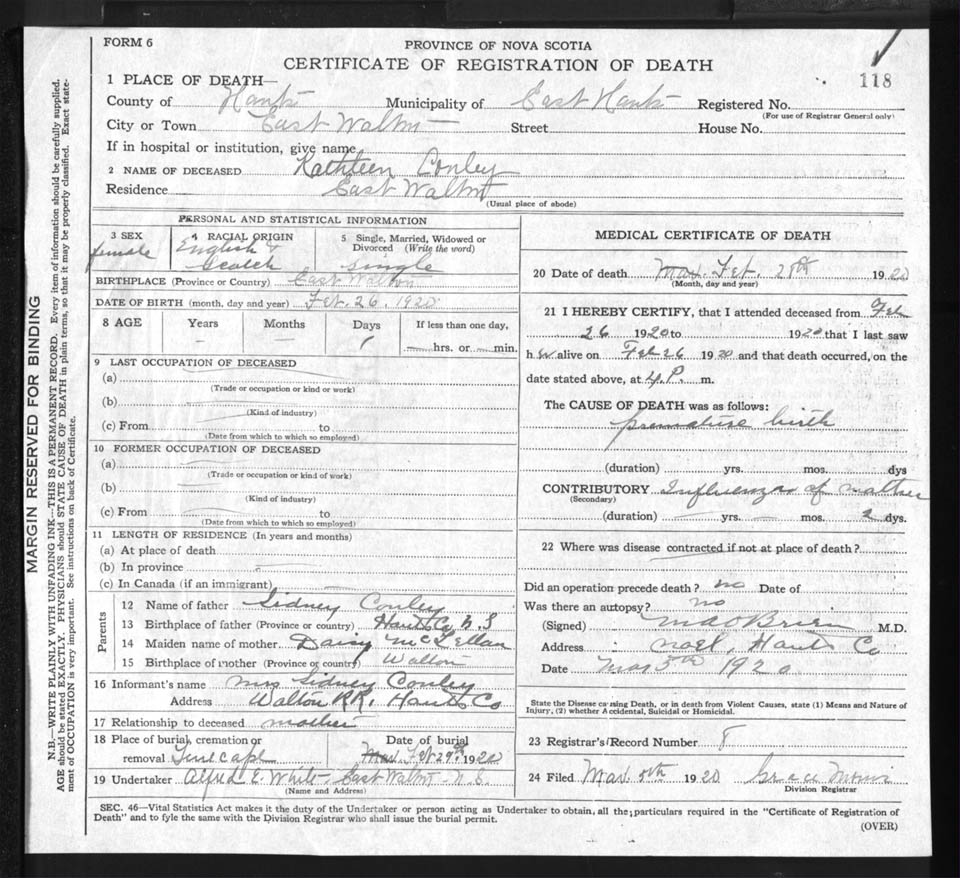 FORM 6
PROVINCE OF NOVA SCOTIA
CERTIFICATE OF REGISTRATION OF DEATH
118
1 PLACE OF DEATH—
County of Hants Municipality of East Hants Registered No.
(For use of Registrar General only)
City or Town East Walton Street House No.
If in hospital or institution, give name
2 NAME OF DECEASED Kathleen Conley
Residence East Walton
(Usual place of abode)
PERSONAL AND STATISTICAL INFORMATION
3 SEX 4 RACIAL ORIGIN 5 Single, Married, Widowed or Divorced (Write the word)
female English & Scotch single
BIRTHPLACE (Province or Country) East Walton
DATE OF BIRTH (month, day and year) Feb. 26, 1920
8 AGE Years Months Days If less than one day,
— — 1 — hrs. or — min.
9 LAST OCCUPATION OF DECEASED
(a)
(Trade or occupation or kind of work)
(b)
(Kind of industry)
(c) From to
(Date from which to which so employed)
10 FORMER OCCUPATION OF DECEASED
(a)
(Trade or occupation or kind of work)
(b)
(Kind of industry)
(c) From to
(Date from which to which so employed)
11 LENGTH OF RESIDENCE (In years and months)
(a) At place of death
(b) In province
(c) In Canada (if an immigrant)
Parents
12 Name of father Sidney Conley
13 Birthplace of father (Province or country) Hants Co, N. S
14 Maiden name of mother Daisy McLellan
15 Birthplace of mother (Province or country) Walton
16 Informant's name Mrs Sidney Conley
Address Walton RR, Hants Co
17 Relationship to deceased mother
18 Place of burial, cremation or Date of burial
removal Tenecape Mar. Feb 29th 1920
19 Undertaker Alfred E. White East Walton N.S.
(Name and Address)
MEDICAL CERTIFICATE OF DEATH
20 Date of death Mar. Feb. 28th 1920
(Month, day and year)
21 I HEREBY CERTIFY, that I attended deceased from Feb
26 1920 to 1920 that I last saw
h er alive on Feb 26 1920 and that death occurred, on the
date stated above, at 4 P. m.
The CAUSE OF DEATH was as follows:
premature birth
(duration) yrs. mos. dys
CONTRIBUTORY Influenza of mother
(Secondary)
(duration) yrs. mos. 2 dys.
22 Where was disease contracted if not at place of death?
Did an operation precede death? no Date of
Was there an autopsy? no
(Signed) M.D.
Address Noel, Hants Co
Date Mar 5th 1920
State the Disease causing Death, or in death from Violent Causes, state (1) Means and Nature of
Injury, (2) whether Accidental, Suicidal or Homicidal.
23 Registrar's Record Number 8
24 Filed Mar. 1920 Grace
Division Registrar
SEC. 46—Vital Statistics Act makes it the duty of the Undertaker or person acting as Undertaker to obtain, all the particulars required in the "Certificate of Registration of
Death" and to fyle the same with the Division Registrar who shall issue the burial permit.
(OVER)
MARGIN RESERVED FOR BINDING
N.B.—WRITE PLAINLY WITH UNFADING INK—THIS IS A PERMANENT RECORD. Every item of information should be carefully supplied.
AGE should be stated EXACTLY. PHYSICIANS should STATE CAUSE OF DEATH in plain terms, so that it may be properly classified. Exact state-
ment of OCCUPATION is very important. See instructions on back of Certificate.